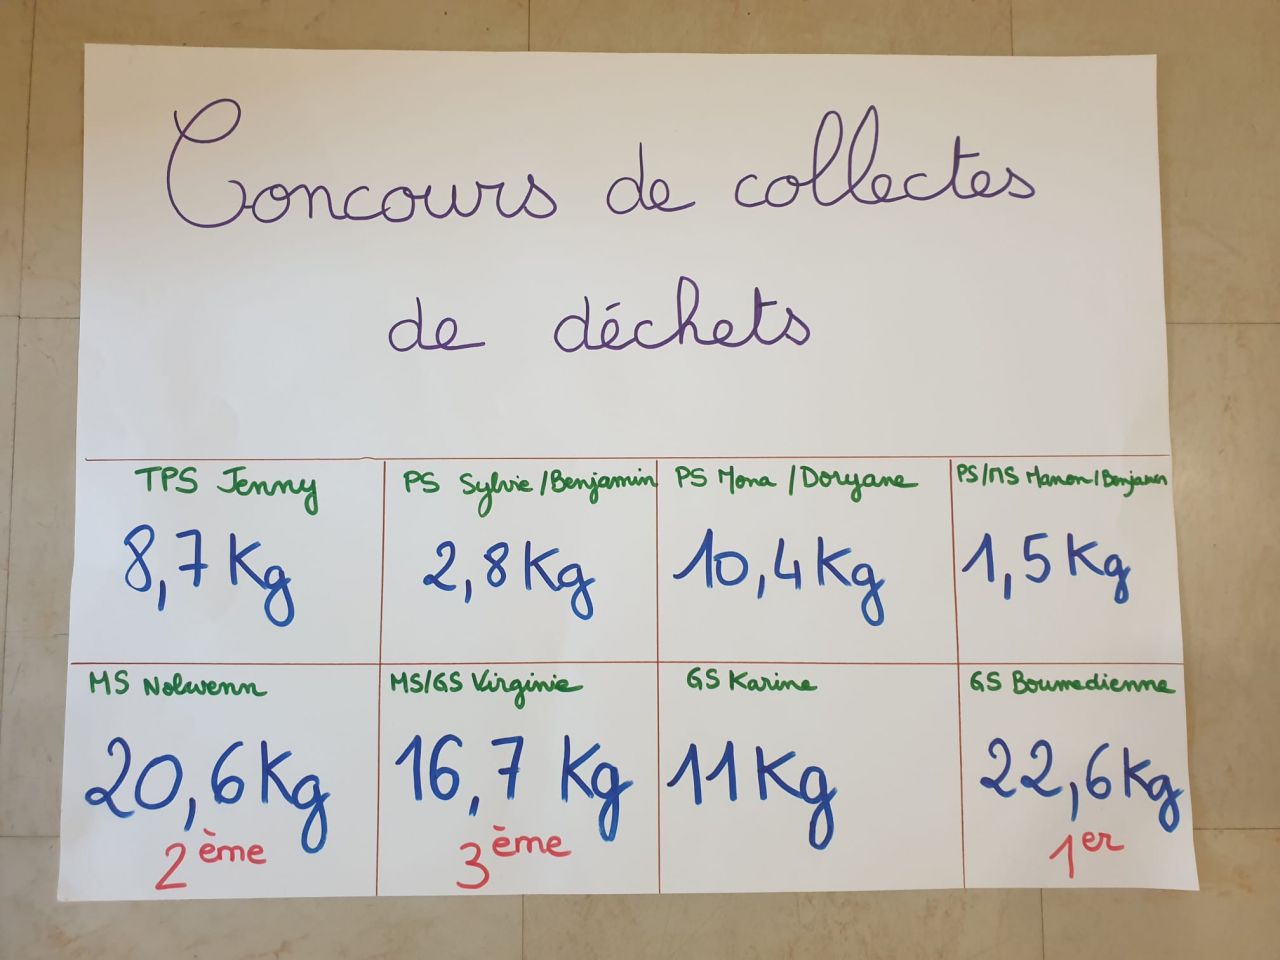 Concours de collectes
de déchets
TPS Jenny
8,7 Kg
PS Sylvie/Benjamin
2,8 Kg
PS Mona/Doryane
10,4 Kg
PS/MS Manon/Benjamin
1,5 Kg
MS Nolwenn
20,6 Kg
2ème
MS/GS Virginie
16,7 Kg
3ème
GS Karine
11 Kg
GS Boumedienne
22,6 Kg
1er